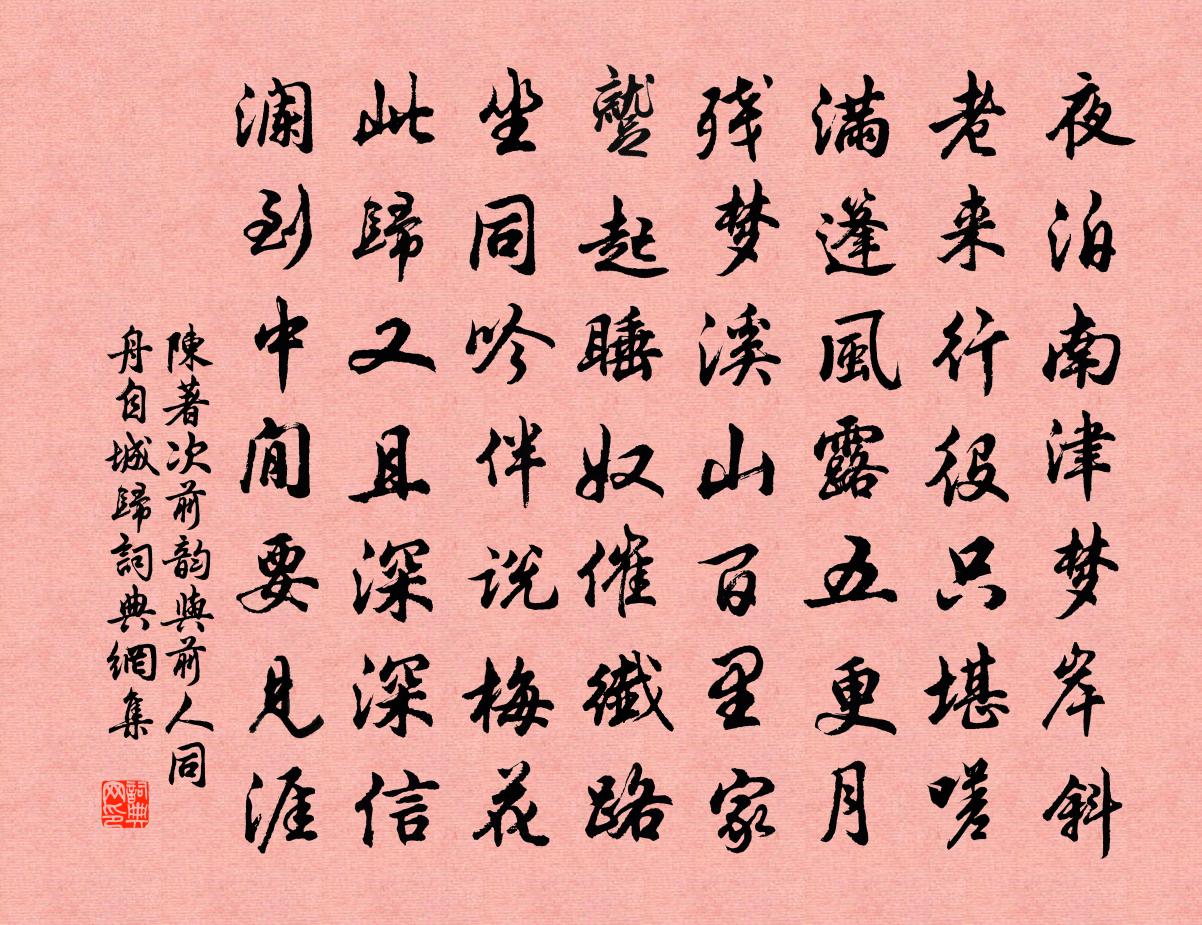 夜泊南津梦岸斜
老来行役只堪嗟
满蓬風露五更月
残梦溪山百里家
蹵起睡奴催纖路
坐同吟伴说梅花
此歸又且深深信
澜到中间要见涯
陳著次前韵與前人同
舟自城歸詞典網集
詞典网印